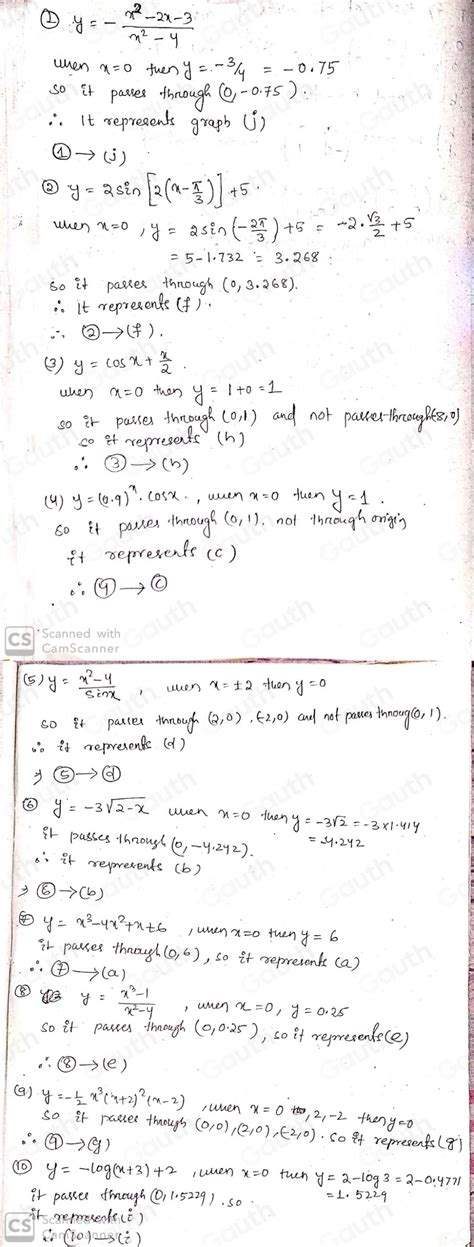 ① y = - x²-2x-3 / x²-4
when x=0 then y = -3/4 = -0.75
so it passes through (0,-0.75).
∴ It represents graph (j)
① → (j)
② y = 2sin[2(x-π/3)]+5.
when x=0, y = 2sin(-2π/3)+5 = -2·√3/2+5
= 5-1.732 = 3.268.
so it passes through (0, 3.268).
∴ It represents (f).
∴ ② → (f).
(3) y = cosx + x/2.
when x=0 then y = 1+0=1
so it passes through (0,1) and not passes through(-3,0)
so it represents (h)
∴ ③ → (h)
(4) y=(0.9)ˣ.cosx., when x=0 then y=1.
so it passes through (0,1). not through origin
it represents (c)
∴ ④ → ©
CS Scanned with
CamScanner
(5) y = x²-4 / sinx, when x=±2 then y=0
so it passes through (2,0).(-2,0) and not passes throug(0,1).
∴ it represents (d)
⇒ ⑤ → ⓓ
⑥ y = -3√2-x when x=0 then y = -3√2 = -3×1.414
it passes through (0,-4.242). =-4.242
∴ it represents (b)
⇒ ⑥ → (b)
⑦ y = x³-4x²+x+6, when x=0 then y=6
it passes through (0,6), so it represents (a)
∴ ⑦ → (a)
⑧ y = x³-1 / x²-4, when x=0, y=0.25
so it passes through (0,0.25), so it represents(e)
∴ ⑧ → (e)
(9) y=-1/2 x³(x+2)²(x-2), when x=0, 2,-2 then y=0
so it passes through (0,0),(2,0),(-2,0). so it represents (g)
∴ ⑨ → (g)
⑩ y = -log(x+3)+2, when x=0 then y=2-log3 = 2-0.4771
it passes through (0,1.5229). so =1.5229
it represents(i)
∴ (10) → (i)
CS Scanned with
CamScanner
Gauth